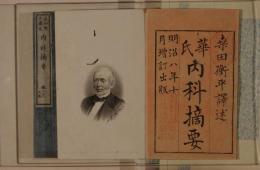 桑田衡平譯述
華氏
内科摘要
明治八年十
月增訂出版
内科摘要